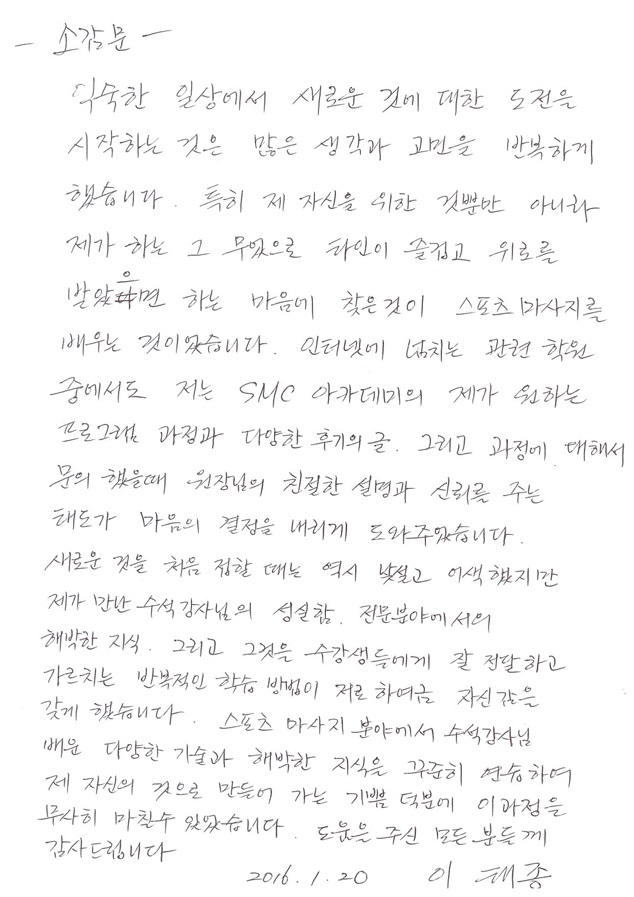 - 소감문 -
익숙한 일상에서 새로운 것에 대한 도전을
시작하는 것은 많은 생각과 고민을 반복하게
했습니다. 특히 제 자신을 위한 것뿐만 아니라
제가 하는 그 무엇으로 타인이 즐겁고 위로를
받았으면 하는 마음에 찾은것이 스포츠 마사지를
배우는 것이었습니다. 인터넷에 넘치는 관련 학원
중에서도 저는 SMC 아카데미의 제가 원하는
프로그램 과정과 다양한 후기의 글. 그리고 과정에 대해서
문의 했을때 원장님의 친절한 설명과 신뢰를 주는
태도가 마음의 결정을 내리게 도와주었습니다.
새로운 것을 처음 접할 때는 역시 낯설고 어색했지만
제가 만난 수석강사님의 성실함. 전문분야에서의
해박한 지식. 그리고 그것을 수강생들에게 잘 전달하고
가르치는 반복적인 학습 방법이 저로 하여금 자신감을
갖게 했습니다. 스포츠 마사지 분야에서 수석강사님
배운 다양한 기술과 해박한 지식을 꾸준히 연습하여
제 자신의 것으로 만들어 가는 기쁨 덕분에 이과정을
무사히 마칠수 있었습니다. 도움을 주신 모든 분들께
감사드립니다
2016.1.20 이 태종